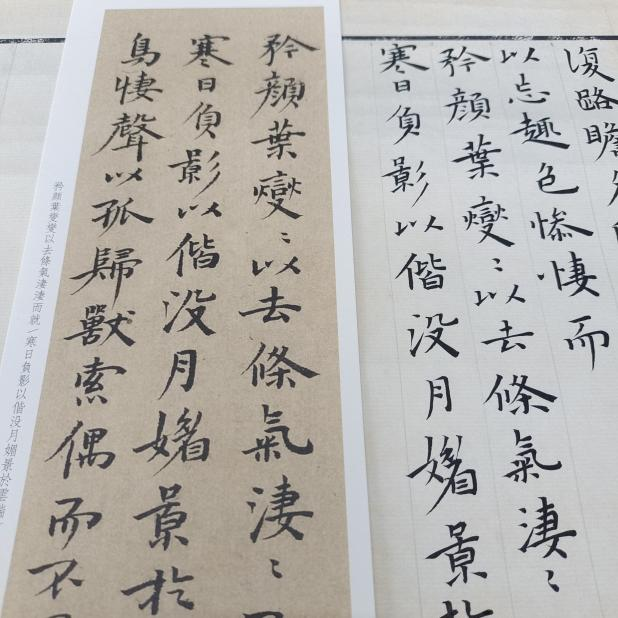 復路瞻
以忘趣色慘悽而
矜顏葉變〻以去條氣淒〻
寒日負影以偕没月媚景於
矜顏葉變〻以去條氣淒〻
寒日負影以偕没月媚景於
鳥悽聲以孤歸獸索偶而不
矜顏葉變變以去條氣淒淒而就/寒日負影以偕没月媚景於雲端/